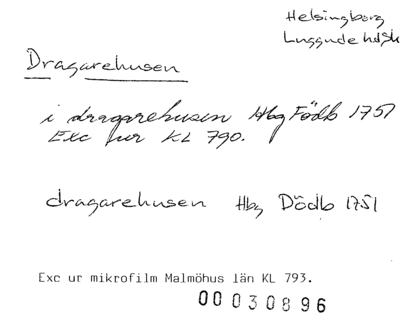 Helsingborg
Luggude hdsk
Dragarehusen
i dragarehusen Hbg Födb 1751
Exc ur KL 790.
dragarehusen Hbg Dödb 1751
Exc ur mikrofilm Malmöhus län KL 793.
00030896